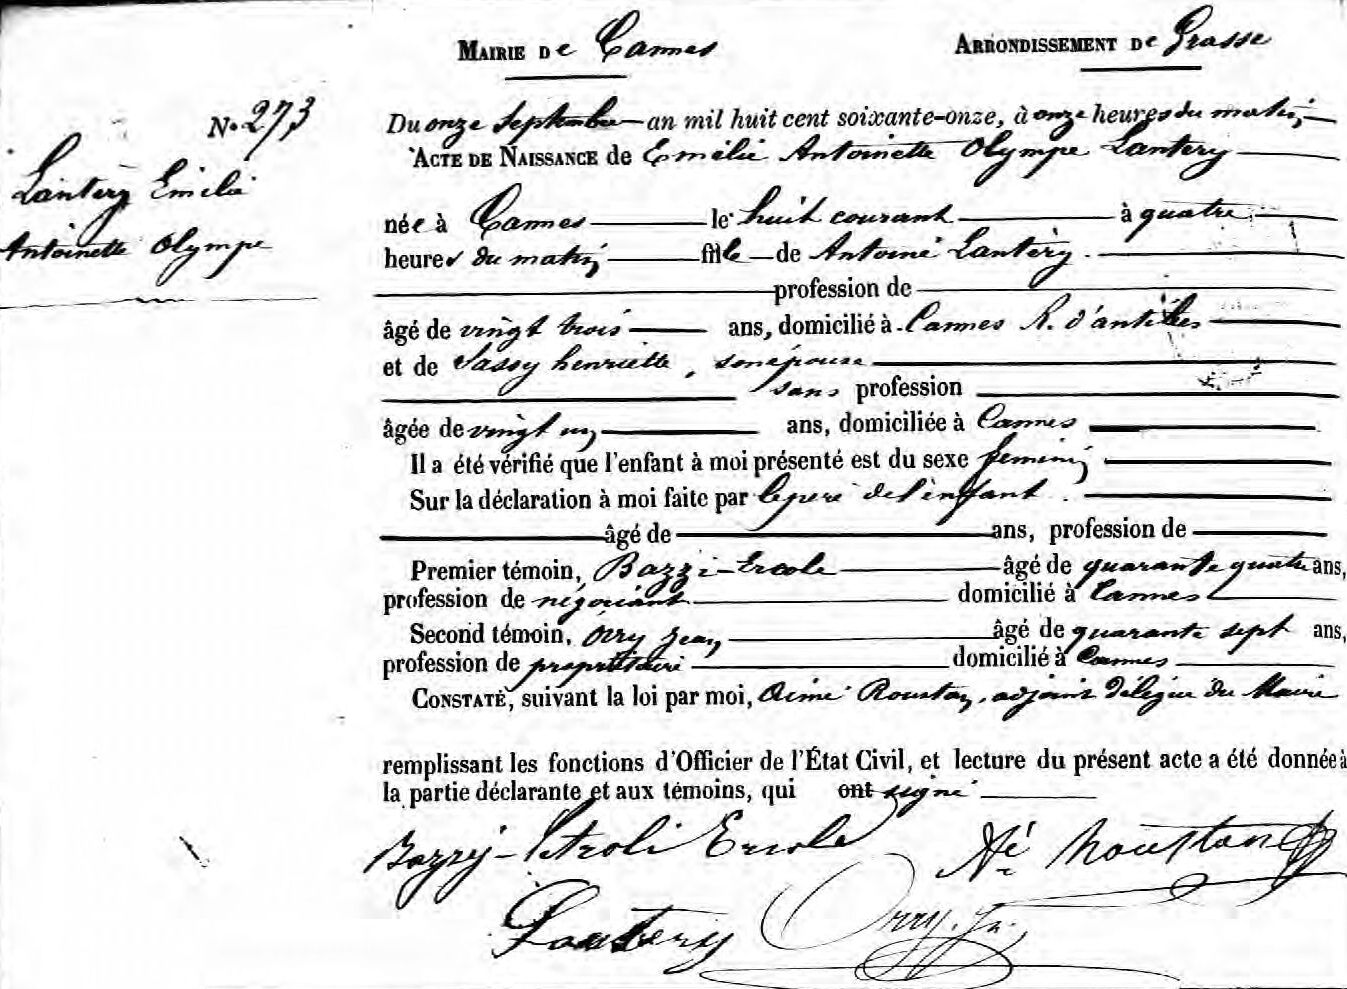 MAIRIE DE Cannes
ARRONDISSEMENT DE Grasse
N.o 273
Lantéry Emélie
Antoinette Olympe
Du onze Septembre an mil huit cent soixante-onze, à onze heures du matin,
ACTE DE NAISSANCE de Emélie Antoinette Olympe Lantéry
née à Cannes le huit courant à quatre
heures du matin fille de Antoine Lantéry
profession de
âgé de vingt trois ans, domicilié à Cannes R. d'antibes
et de Sassy henriette, son épouse
sans profession
âgée de vingt un ans, domiciliée à Cannes
Il a été vérifié que l'enfant à moi présenté est du sexe feminin
Sur la déclaration à moi faite par le pere de l'enfant.
âgé de ans, profession de
Premier témoin, Bazzi-Ercole âgé de quarante quatre ans,
profession de négociant domicilié à Cannes
Second témoin, Orry Jean âgé de quarante sept ans,
profession de propriétaire domicilié à Cannes
CONSTATÉ, suivant la loi par moi, Aimé Roustan, adjoint délégué du Maire
remplissant les fonctions d'Officier de l'État Civil, et lecture du présent acte a été donnée à
la partie déclarante et aux témoins, qui ont signé
Ercole
Aé Roustan
Lantery
Orry. Jn.